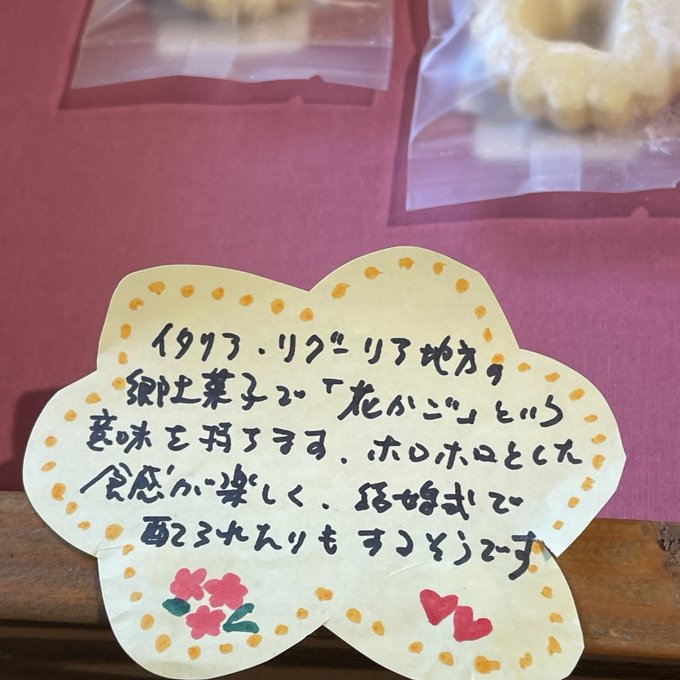 イタリア・リグーリア地方の
郷土菓子で「花かご」という
意味を持ちます。ホロホロとした
食感が楽しく、結婚式で
配られたりもするそうです